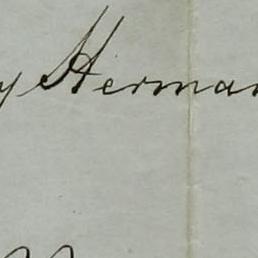 y Herman